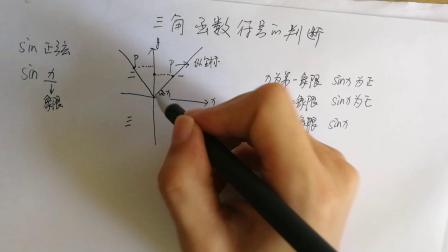 三角函数符号的判断
sin 正弦
sin x
象限
y
P
P
纵坐标
二
x
x
三
x为第一象限 sinx为正
象限 sinx为正
象限 sinx